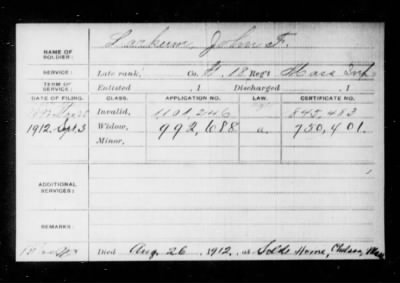 NAME OF SOLDIER: Larkum, John F.
SERVICE: Late rank, Co. H, 18 Reg't Mass Inf.
TERM OF SERVICE: Enlisted , 1 Discharged , 1
DATE OF FILING. CLASS. APPLICATION NO. LAW. CERTIFICATE NO.
Invalid, 1,101,246 845,483
1912 Sept. 3 Widow, 992,688 a. 750,401.
Minor,
ADDITIONAL SERVICES:
REMARKS:
Died Aug. 26, 1912, at Solds Home, Chelsea, Mass